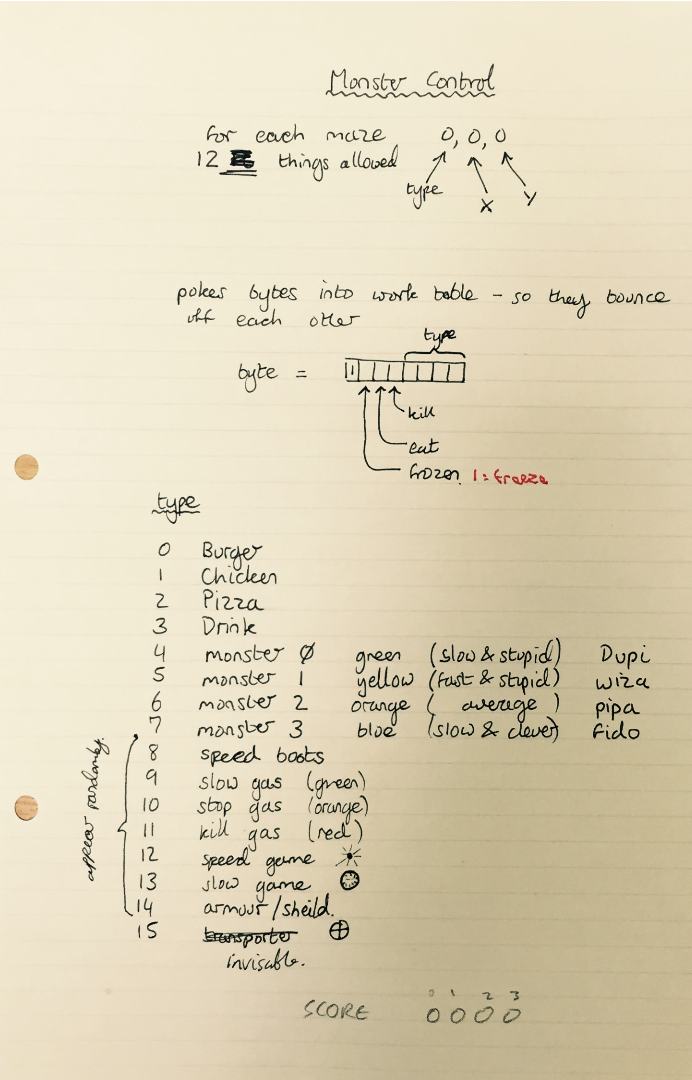 Monster Control
For each maze 0, 0, 0
12 things allowed
type X Y
pokes bytes into work table - so they bounce
off each other
type
byte =
kill
eat
frozen. 1 = freeze
type
0 Burger
1 Chicken
2 Pizza
3 Drink
4 monster 0 green (slow & stupid) Dupi
5 monster 1 yellow (fast & stupid) wiza
6 monster 2 orange ( average ) pipa
7 monster 3 blue (slow & clever) Fido
appear randomly.
8 speed boots
9 slow gas (green)
10 stop gas (orange)
11 kill gas (red)
12 speed game
13 slow game
14 armour/sheild.
15 transporter
invisable.
0 1 2 3
SCORE 0 0 0 0